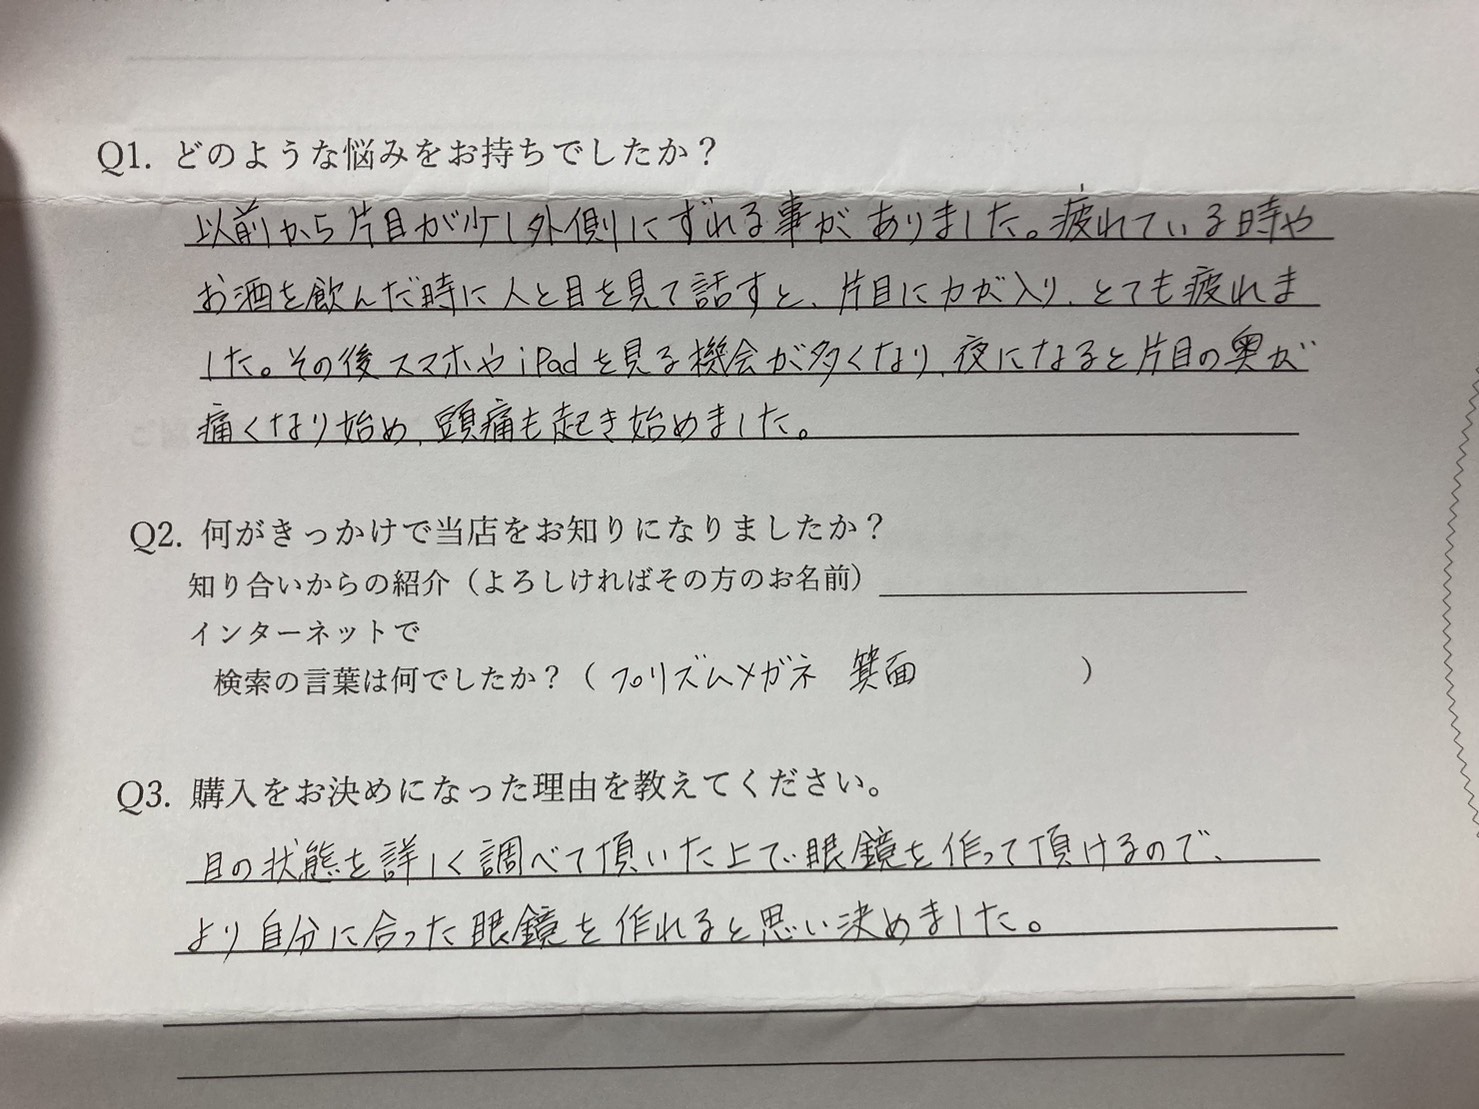 Q1. どのような悩みをお持ちでしたか？
以前から片目が少し外側にずれる事がありました。疲れている時や
お酒を飲んだ時に人と目を見て話すと、片目に力が入り、とても疲れま
した。その後スマホやiPadを見る機会が多くなり、夜になると片目の奥が
痛くなり始め、頭痛も起き始めました。
Q2. 何がきっかけで当店をお知りになりましたか？
知り合いからの紹介（よろしければその方のお名前）
インターネットで
検索の言葉は何でしたか？（プリズムメガネ 箕面 ）
Q3. 購入をお決めになった理由を教えてください。
目の状態を詳しく調べて頂いた上で眼鏡を作って頂けるので、
より自分に合った眼鏡を作れると思い決めました。